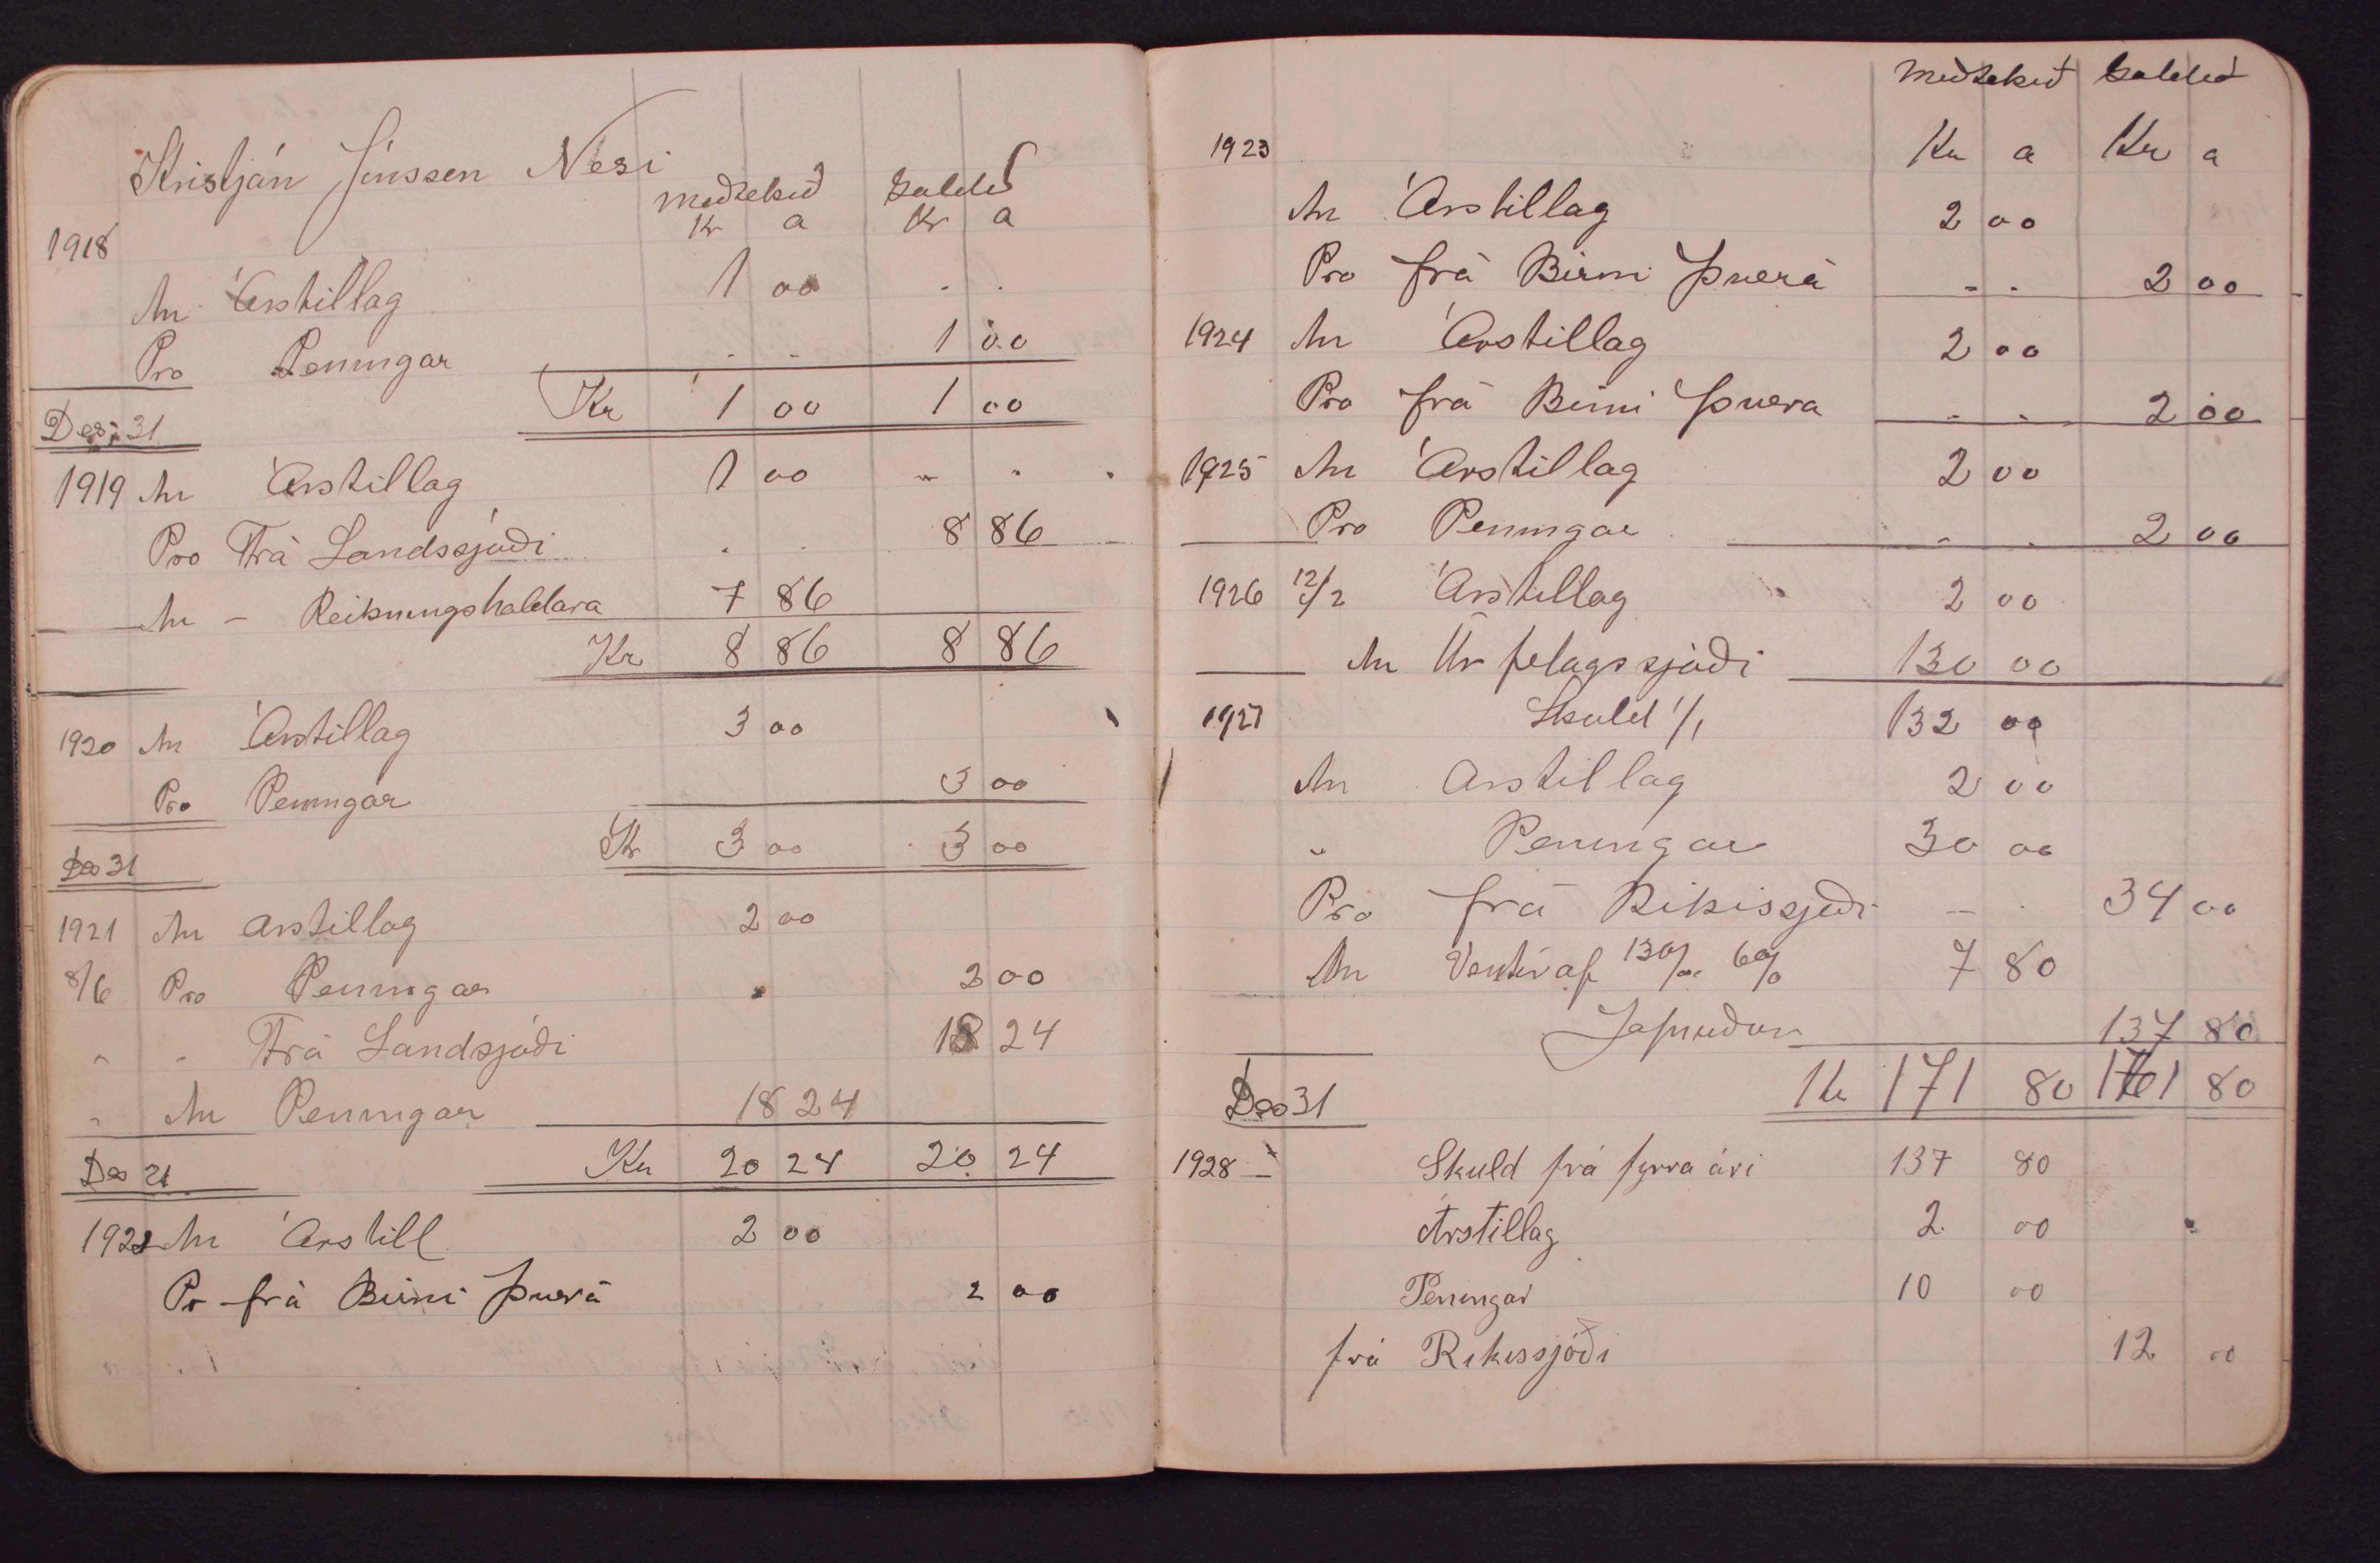 Kristján Jónsson Nesi
Meðtekið Goldið
Kr a Kr a
1918
An Árstillag 1 00 . .
Pro Peningar . . 1 00
Des. 31 Kr 1 00 1 00
1919 An Árstillag 1 00 - .
Pro Frá Landssjóði . . 8 86
An - Reikningshaldara 7 86
Kr 8 86 8 86
1920 An Árstillag 3 00
Pro Peningar 3 00
Des 31 Kr 3 00 3 00
1921 An árstillag 2 00
8/6 Pro Peningar 2 00
" " Frá Landsjóði 18 24
" An Peningar 18 24
Des 31 Kr 20 24 20 24
1922 An Árstill 2 00
Pr frá Birni Þverá 2 00
Meðtekið Goldið
1923 Kr a Kr a
An Árstillag 2 00
Pro frá Birni Þverá - . 2 00
1924 An Árstillag 2 00
Pro frá Birni Þvera - - 2 00
1925 An Árstillag 2 00
Pro Peningar - . 2 00
1926 12/2 Árstillag 2 00
An Úr felagssjóði 130 00
1927 Skuld 1/1 132 00
An Arstillag 2 00
" Peningar 30 00
Pro frá Rikissjóði - . 34 00
An Vextir af 130/00 6% 7 80
Jafnaðar 137 80
Des 31 Kr 171 80 171 80
1928 - Skuld frá fyrra ári 137 80
Árstillag 2 00
Peningar 10 00
frá Rikissjóði 12 00